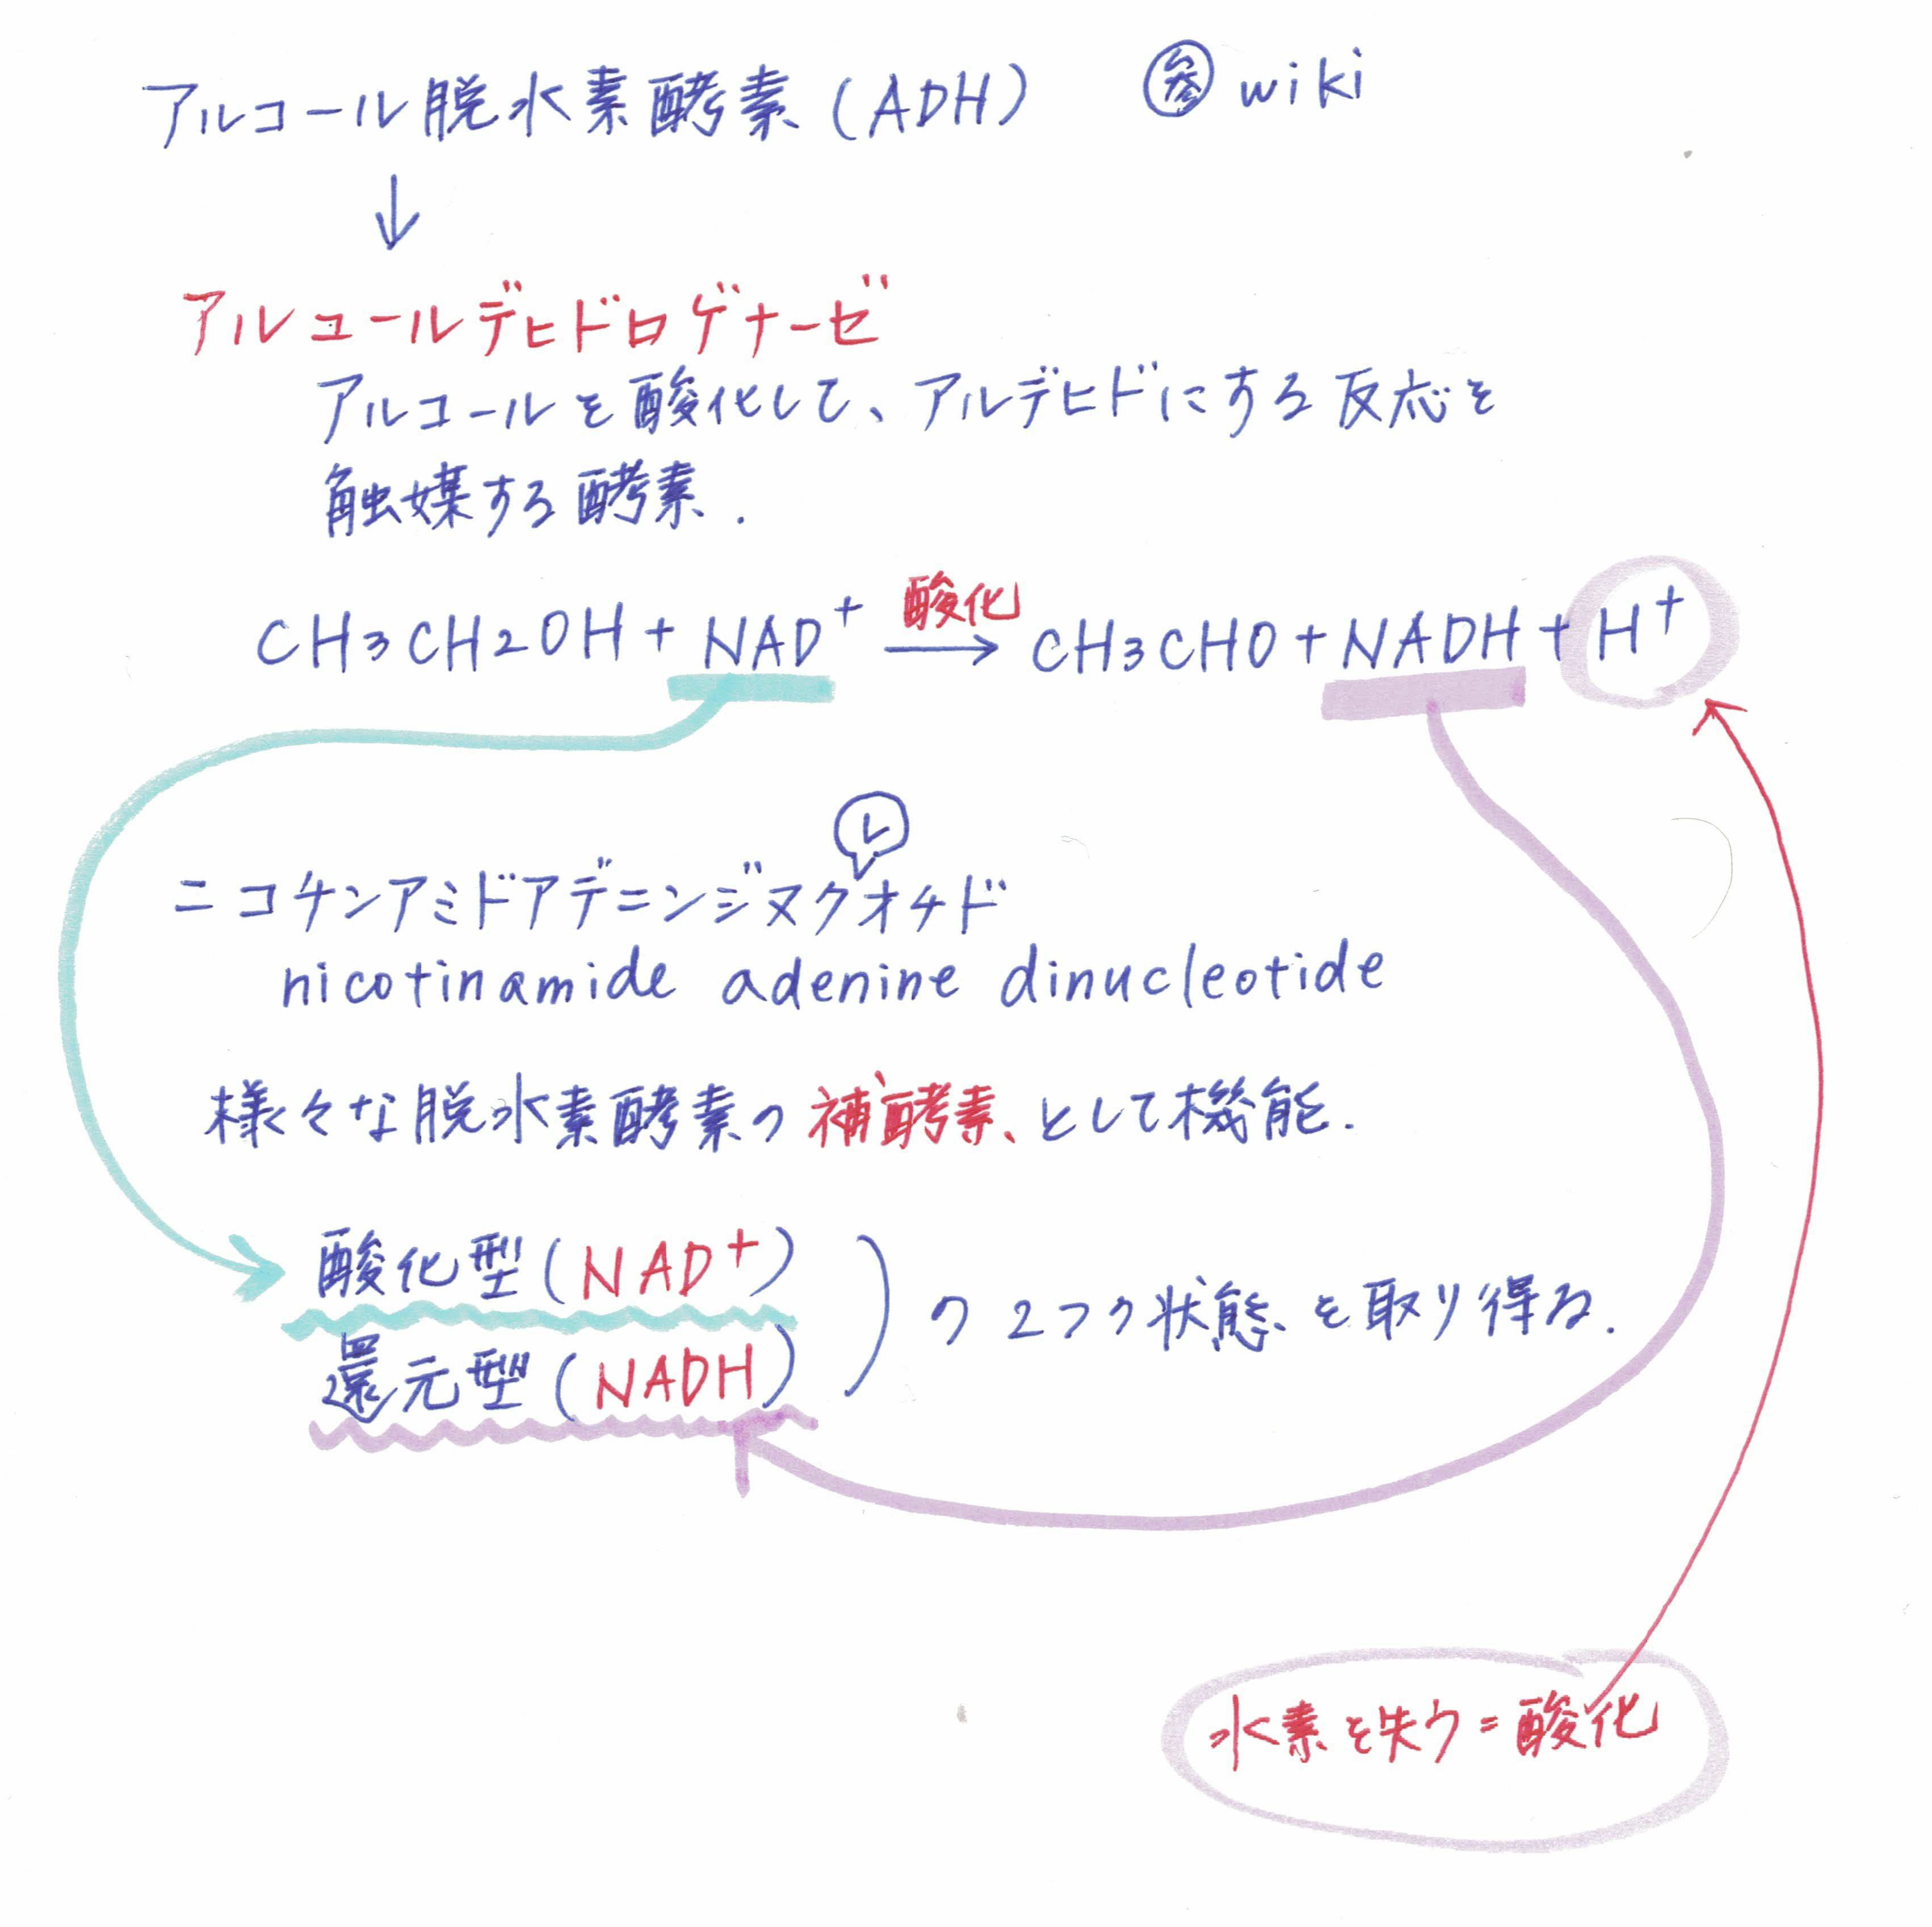 アルコール脱水素酵素(ADH) 参 wiki
↓
アルコールデヒドロゲナーゼ
アルコールを酸化して、アルデヒドにする反応を
触媒する酵素.
酸化
CH3CH2OH + NAD⁺ → CH3CHO + NADH + H⁺
レ
ニコチンアミドアデニンジヌクオチド
nicotinamide adenine dinucleotide
様々な脱水素酵素の補酵素、として機能.
酸化型(NAD⁺)
還元型(NADH)
の2つの状態を取り得る.
水素を失う=酸化